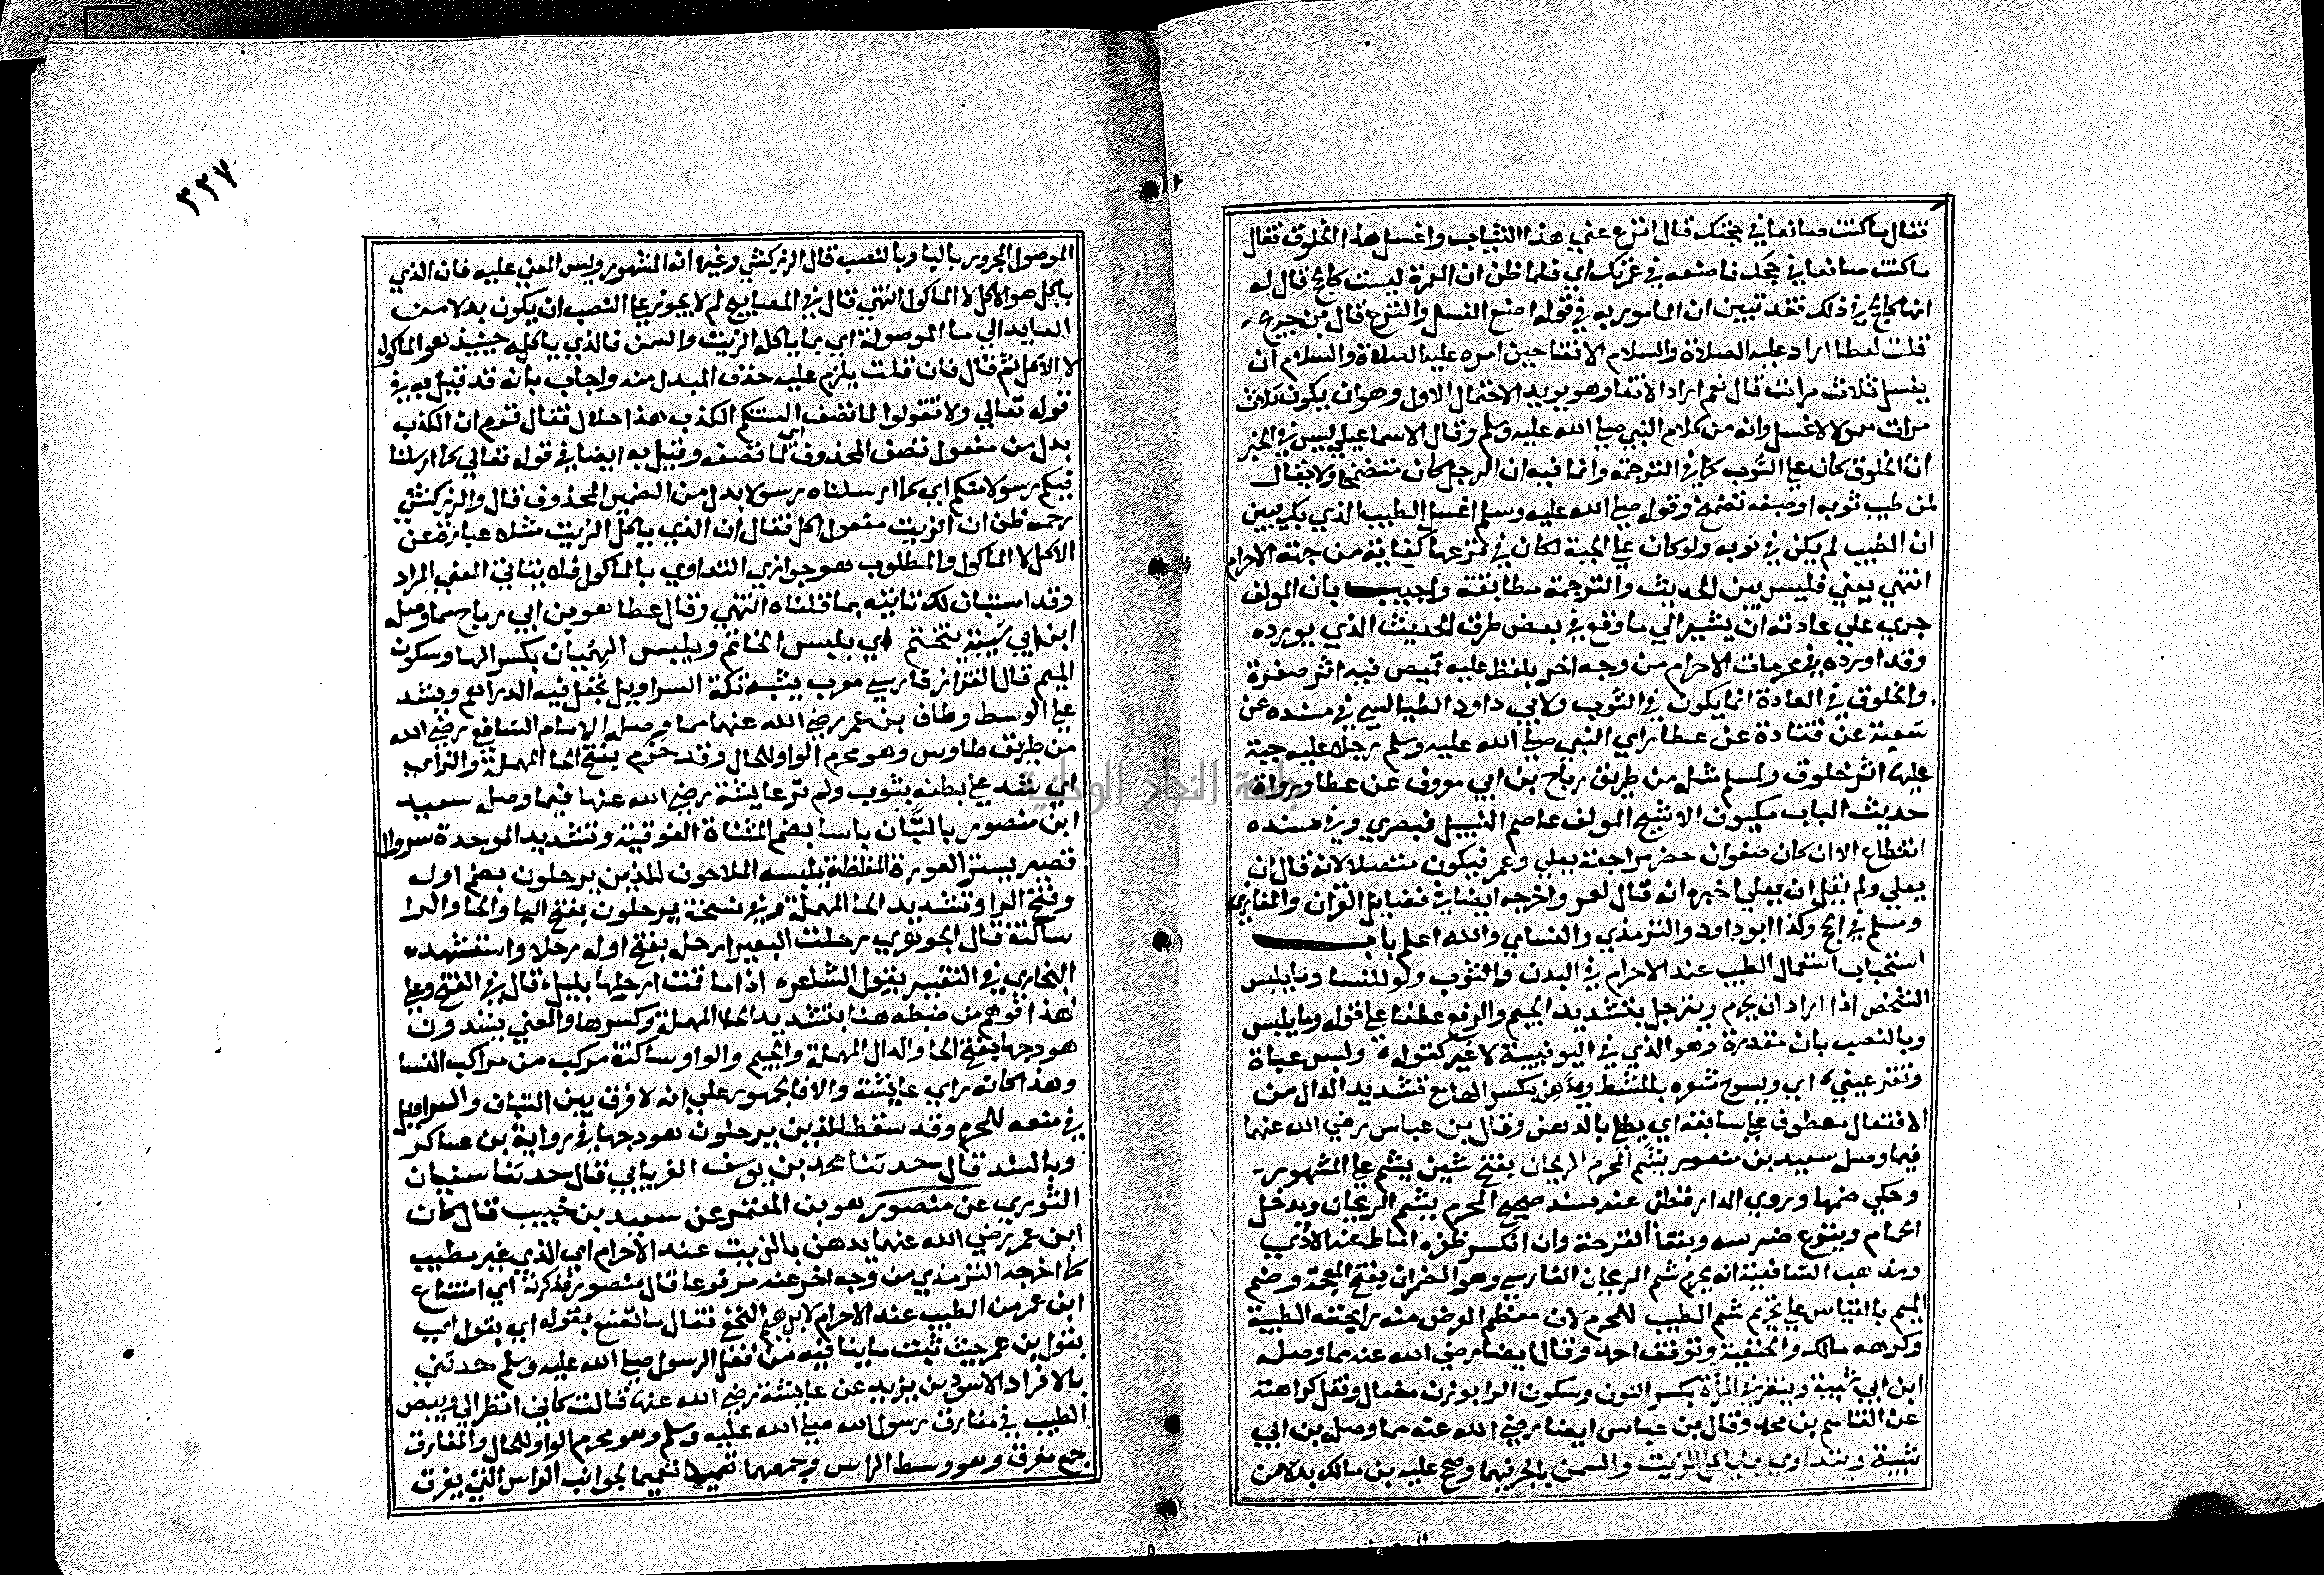 فقال ما كنت صانعا في حجتك قال انزع عني هذا الثياب واغسل هذا الخلوق فقال
ما كنت صانعا في حجك فاصنعه في عمرتك اي فلما ظن ان العمرة ليست كالحج قال له
انها كالحج في ذلك فقد تبين ان المامور به في قوله اصنع الغسل والنزع قال بن جريج
قلت لعطا اراد عليه الصلاة والسلام الانقا حين امره عليه الصلاة والسلام ان
يغسل ثلاث مرات قال نعم اراد الانقا وهو يويد الاحتمال الاول وهو ان يكون ثلاث
مرات معمولا لاغسل وانه من كلام النبي صلي الله عليه وسلم وقال الاسماعيلي ليس في الخبر
ان الخلوق كان علي الثوب كما في الترجمة وانما فيه ان الرجل كان متضمخا ولا يقال
لمن طيب ثوبه او صبغه تضمخ وقوله صلي الله عليه وسلم اغسل الطيب الذي بك يبين
ان الطيب لم يكن في ثوبه ولو كان علي الجبة لكان في نزعها كفاية من جهة الاحرام
انتهي يعني فليس بين الحديث والترجمة مطابقة واجيب بان المولف
جري علي عادته ان يشير الي ما وقع في بعض طرق الحديث الذي يورده
وقد اورده في محرمات الاحرام من وجه اخر بلفظ عليه قميص فيه اثر صفرة
والخلوق في العادة انما يكون في الثوب ولابي داود الطيالسي في مسنده عن
شعبة عن قتادة عن عطا راي النبي صلي الله عليه وسلم رجلا عليه جبة
عليها اثر خلوق ولمسلم مثله من طريق رباح بن ابي معروف عن عطا ورواة
حديث الباب مكيون الا شيخ المولف عاصم النبيل فبصري وفي مسنده
انقطاع الا ان كان صفوان حضر مراجعة يعلي وعمر فيكون متصلا لانه قال ان
يعلي ولم يقل ان يعلي اخبره انه قال لعمر واخرجه ايضا في فضايل القران والمغازي
ومسلم في الحج وكذا ابو داود والترمذي والنساي والله اعلم باب
استحباب استعمال الطيب عند الاحرام في البدن والثوب ولو للنسا وما يلبس
الشخص اذا اراد ان يحرم ويترجل بتشديد الجيم والرفع عطفا علي قوله وما يلبس
وبالنصب بان مقدرة وهو الذي في اليونينية لا غير كقوله ولبس عباة
وتقر عيني اي ويسرح شعره بالمشط ويدهن بكسر الها مع تشديد الدال من
الافتعال معطوف علي سابقه اي يطلي بالدهن وقال بن عباس رضي الله عنهما
فيما وصله سعيد بن منصور يشم المحرم الريحان بفتح شين يشم علي المشهور
وحكي ضمها وروي الدارقطني عنه بسند صحيح المحرم يشم الريحان ويدخل
الحمام وينزع ضرسه ويفقأ القرحة وان انكسر ظفره اماط عنه الاذي
ومذهب الشافعية انه يحرم شم الريحان الفارسي وهو الضمران بفتح المعجمة وضم
الميم بالقياس علي تحريم شم الطيب للمحرم لان معظم الغرض منه رايحته الطيبة
وكرهه مالك والحنفية وتوقف احمد وقال ايضا رضي الله عنه مما وصله
ابن ابي شيبة وينظر في المرأة بكسر الميم وسكون الرا بوزن مفعال ونقل كراهته
عن القاسم بن محمد وقال بن عباس ايضا رضي الله عنه مما وصله بن ابي
شيبة ويتداوي بما ياكل الزيت والسمن بالجر فيهما وصحح عليه بن مالك بدلا من
٣٢٧
الموصول المجرور بالبا وبالنصب قال الزركشي وغيره انه المشهور وليس المعني عليه فان الذي
ياكل هو الاكل لا الماكول انتهي قال في المصابيح لم لا يجوز علي النصب ان يكون بدلا من
العايد الي ما الموصولة اي بما ياكله الزيت والسمن فالذي ياكله حينيذ هو الماكول
لا الاكل ثم قال فان قلت يلزم عليه حذف المبدل منه واجاب بأنه قد قيل به في
قوله تعالي ولا تقولوا لما تصف السنتكم الكذب هذا حلال فقال قوم ان الكذب
بدل من مفعول تصف المحذوف اي لما تصفه وقيل به ايضا في قوله تعالي كما ارسلنا
فيكم رسولا منكم اي كما ارسلناه رسولا بدل من الضمير المحذوف قال والزركشي
رحمه ظن ان الزيت مفعول اكل فقال ان الذي ياكل الزيت مثله عبارة عن
الاكل لا الماكول والمطلوب هو جواز التداوي بالماكول فلا يتاتي المعني المراد
وقد استبان لك تاتيه بما قلناه انتهي وقال عطا هو بن ابي رباح مما وصله
ابن ابي شيبة يتختم اي يلبس الخاتم ويلبس الهميان بكسر الها وسكون
الميم قال القزاز فارسي معرب يشبه تكة السراويل تجعل فيه الدراهم ويشد
علي الوسط وطاف بن عمر رضي الله عنهما مما وصله الامام الشافعي رضي الله
من طريق طاوس وهو محرم الواو للحال وقد حزم بفتح الحا المهملة والزاي
اي شد علي بطنه بثوب ولم تر عايشة رضي الله عنها فيما وصله سعيد
ابن منصور بالتبان باسا بضم المثناة الفوقية وتشديد الموحدة سروال
قصير يستر العورة المغلظة يلبسه الملاحون للذين يرحلون بضم اوله
وفتح الرا وتشديد الحا المهملة وفي نسخة يرحلون بفتح اليا والحا والرا
ساكنة قال الجوهري رحلت البعير ارحله بفتح اوله رحلا واستشهد
البخاري في التفسير بقول الشاعر اذا ما قمت ارحلها بليل قال في الفتح وعلي
هذا فوهم من ضبطه هنا بتشديد الحا المهملة وكسرها والمعني يشدون
هودجها بفتح الها والدال المهملة والجيم والواو ساكنة مركب من مراكب النسا
وهذا كانه راي عايشة والا فالجمهور علي انه لا فرق بين التبان والسراويل
في منعه للمحرم وقد سقط للذين يرحلون هودجها في رواية بن عساكر
وبالسند قال حدثنا محمد بن يوسف الفريابي قال حدثنا سفيان
الثوري عن منصور هو بن المعتمر عن سعيد بن جبير قال كان
ابن عمر رضي الله عنهما يدهن بالزيت عند الاحرام اي الذي غير مطيب
كما اخرجه الترمذي من وجه اخر عنه مرفوعا قال منصور فذكرته اي امتناع
ابن عمر من الطيب عند الاحرام لابراهيم النخعي فقال ما تصنع بقوله اي بقول اي
بقول بن عمر حيث ثبت ما ينافيه من فعل الرسول صلي الله عليه وسلم حدثني
بالافراد الاسود بن يزيد عن عايشة رضي الله عنها قالت كاني انظر الي وبيص
الطيب في مفارق رسول الله صلي الله عليه وسلم وهو محرم الواو للحال والمفارق
جمع مفرق وهو وسط الراس وجمعها تعميما لجوانب الراس التي يفرق
جامعة النجاح الوطنية